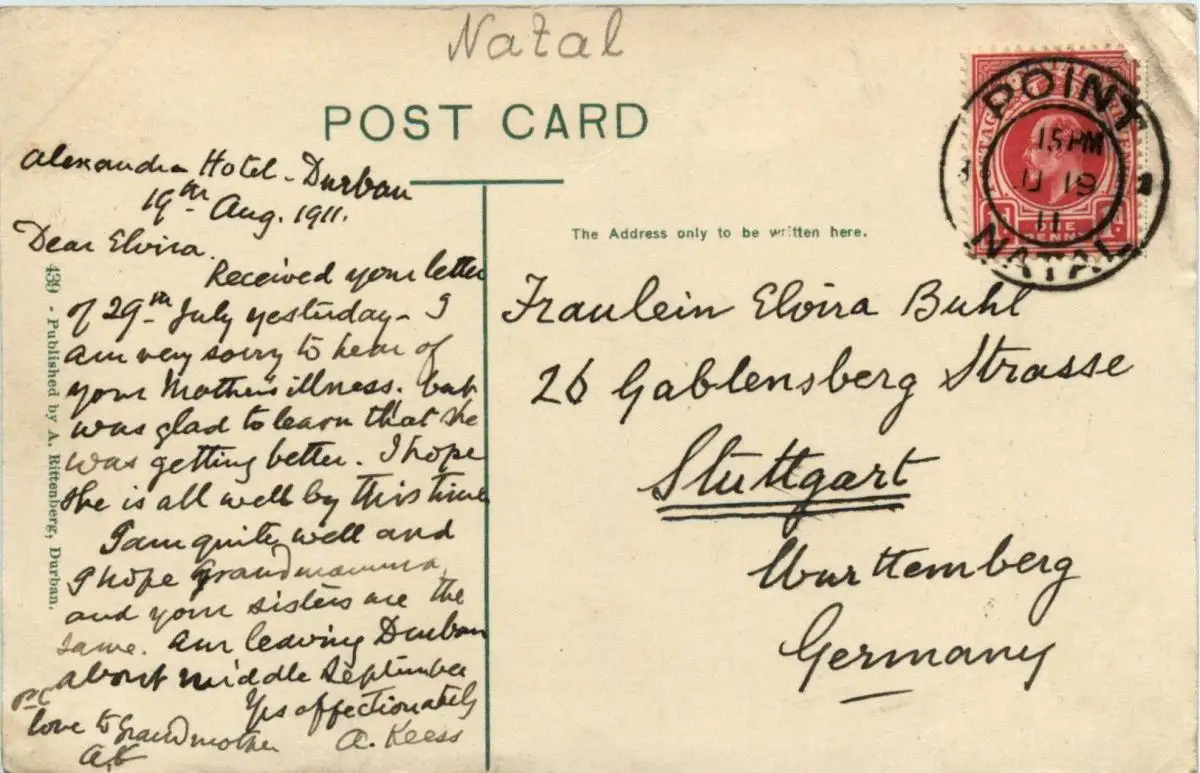 Natal
POST CARD
Alexandra Hotel - Durban
19th Aug. 1911.
Dear Elvira.
Received your letter
of 29th July yesterday - I
am very sorry to hear of
your Mother's illness. but
was glad to learn that she
was getting better. I hope
she is all well by this time
I am quite well and
I hope Grandmamma
and your sisters are the
same. Am leaving Durban
about middle September
Yrs affectionately
A. Keess
love to Grandmother
439 - Published by A. Rittenberg, Durban.
The Address only to be written here.
Fraulein Elvira Buhl
26 Gablensberg Strasse
Stuttgart
Wurttemberg
Germany
POINT
15 PM
U 19
11
NATAL
ONE
PENNY